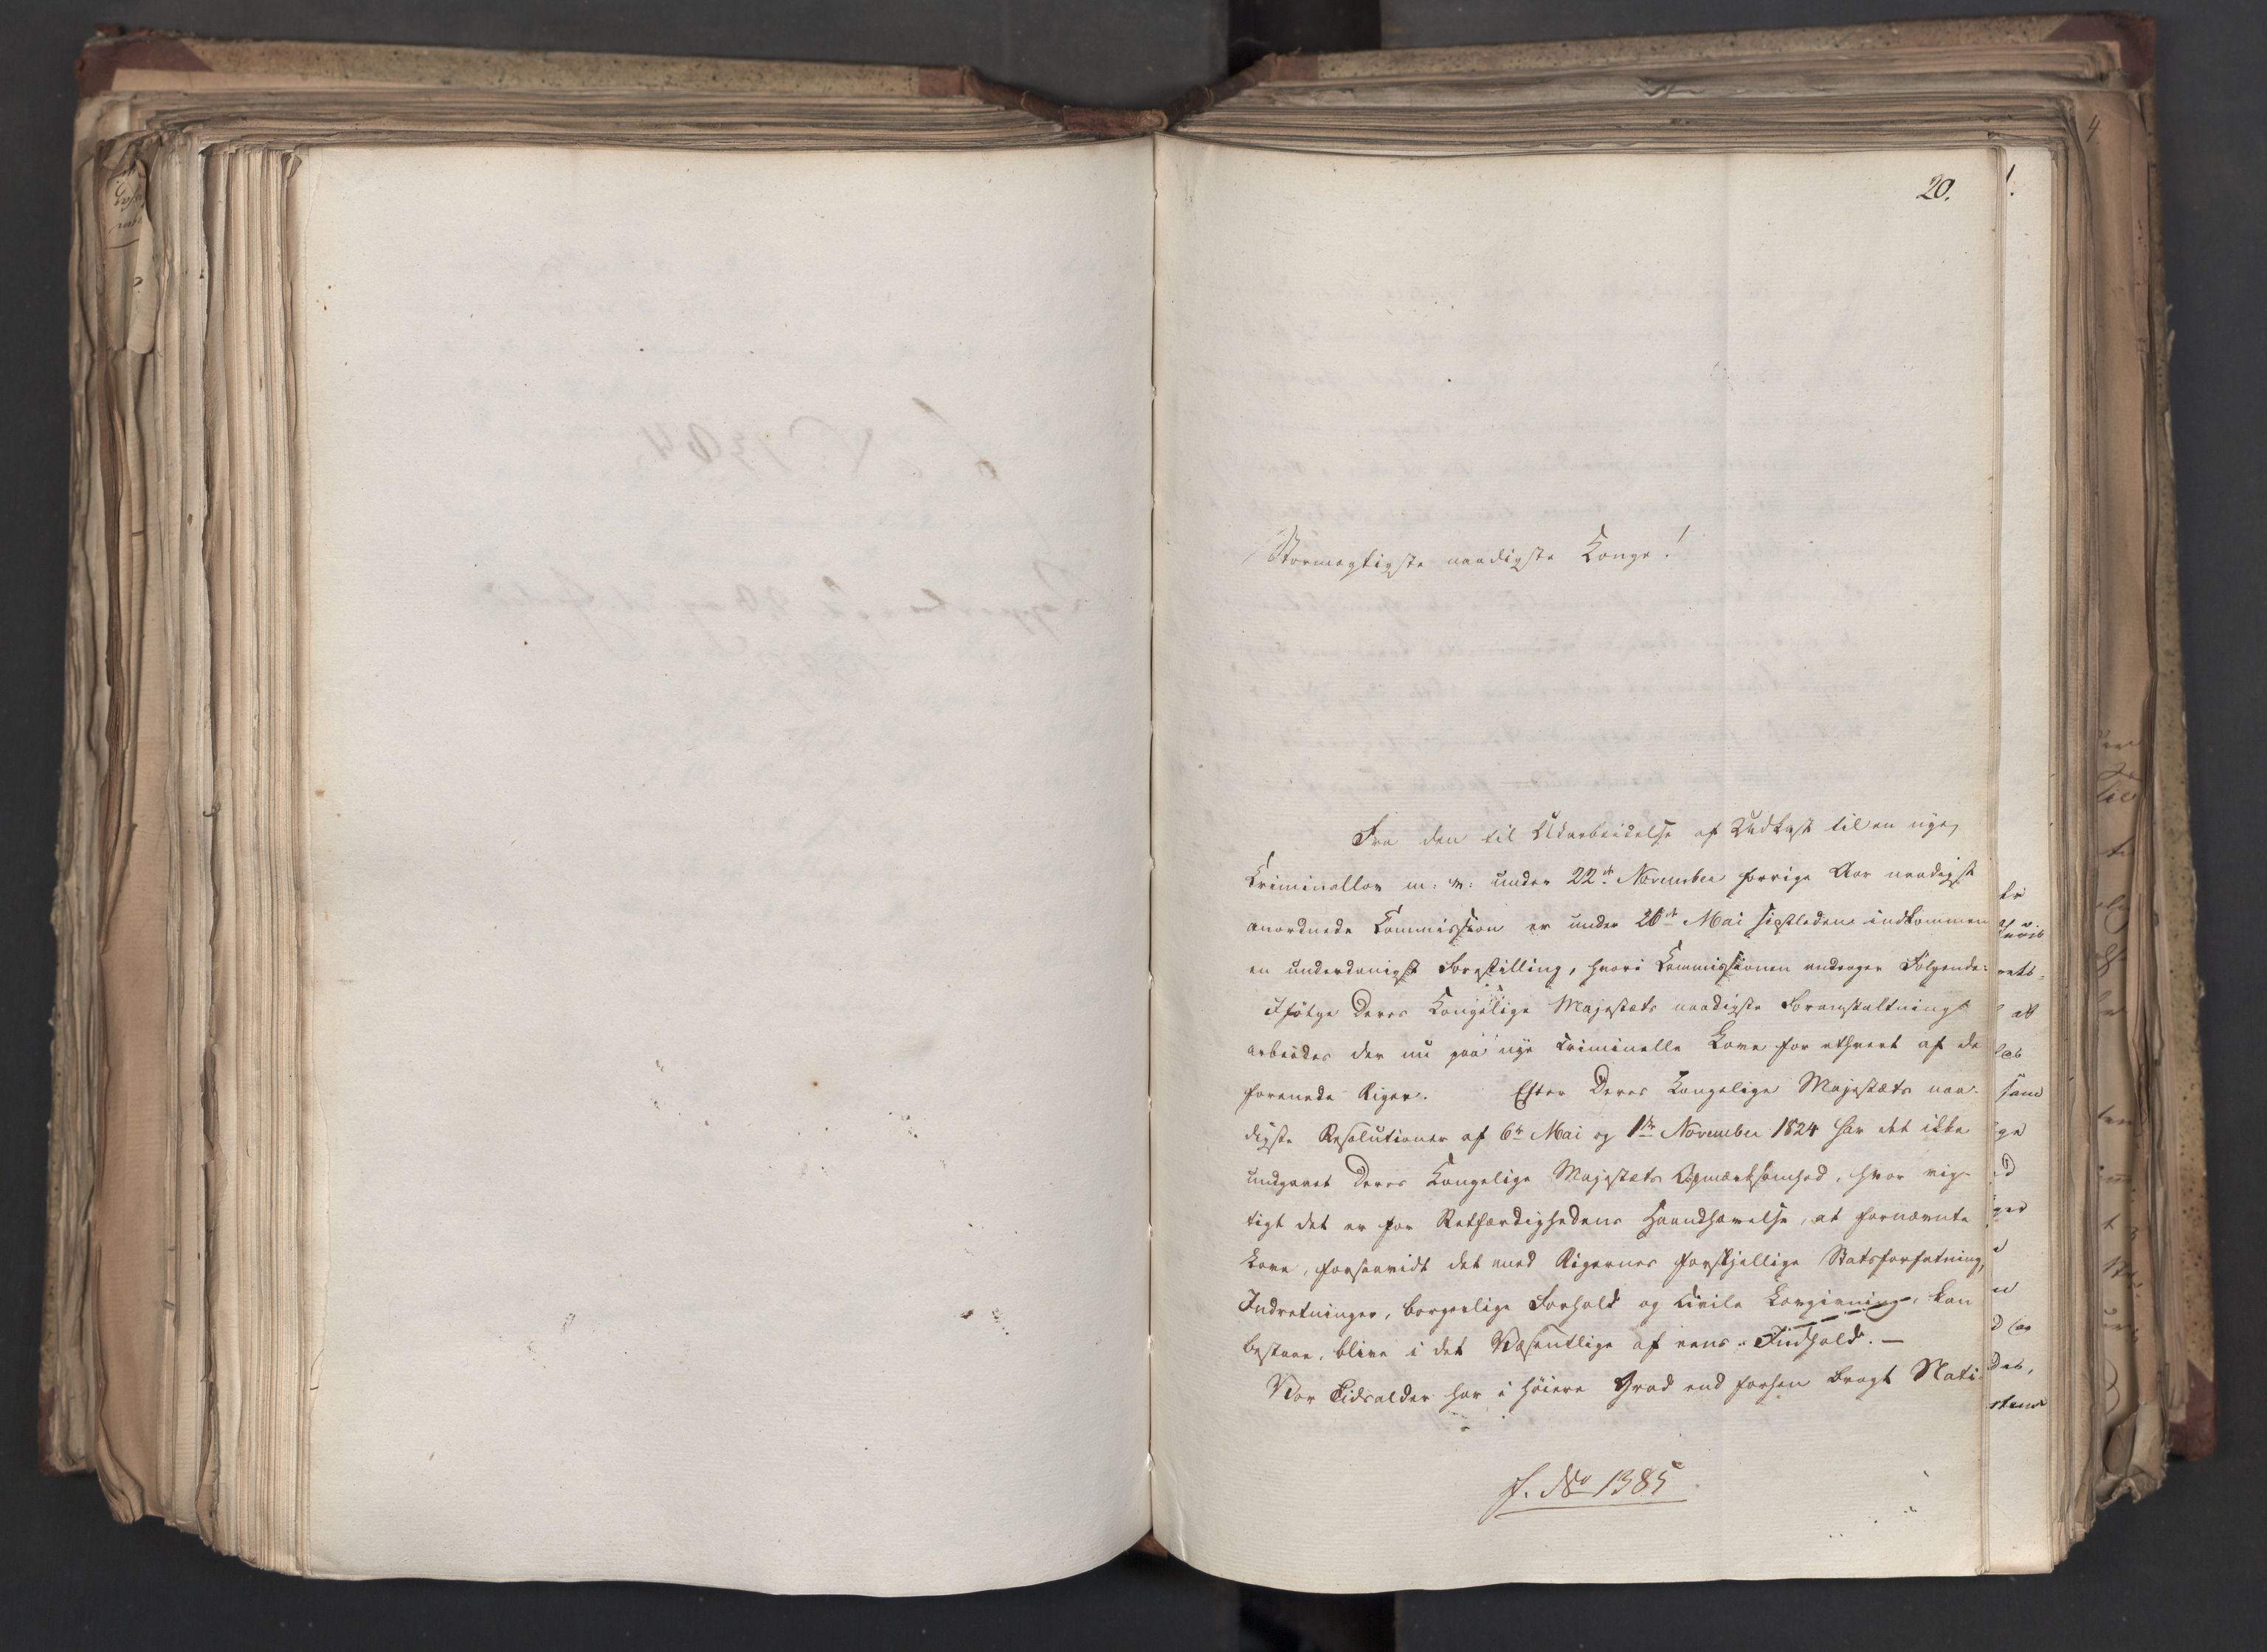 20.
Stormægtigste naadigste Konge!
Fra den til Udarbeidelse af Udkast til en nye
Criminallov m: v: under 22de November forrige Aar naadigst
anordnede Commission er under 26de Mai sidstleden indkommen
en underdanigst Forestilling, hvori Commissionen andrager Følgende:
Ifølge Deres Kongelige Majestæts naadigste Foranstaltning
arbeides der nu paa nye Criminelle Love for ethvert af de
forenede Riger. Efter Deres Kongelige Majestæts naa-
digste Resolutioner af 6te Mai og 1ste November 1824 har det ikke
undgaaet Deres Kongelige Majestæts Opmærksomhed, hvor vig-
tigt det er for Retfærdighedens Haandhævelse, at fornævnte
Love, forsaavidt det med Rigernes forskjellige Statsforfatning,
Indretninger, borgerlige Forhold og Civile Lovgivning, kan
bestaae, blive i det Væsentlige af eens Indhold. —
Vor Tidsalder har i høiere Grad end forhen bragt Nati-
f. No 1385